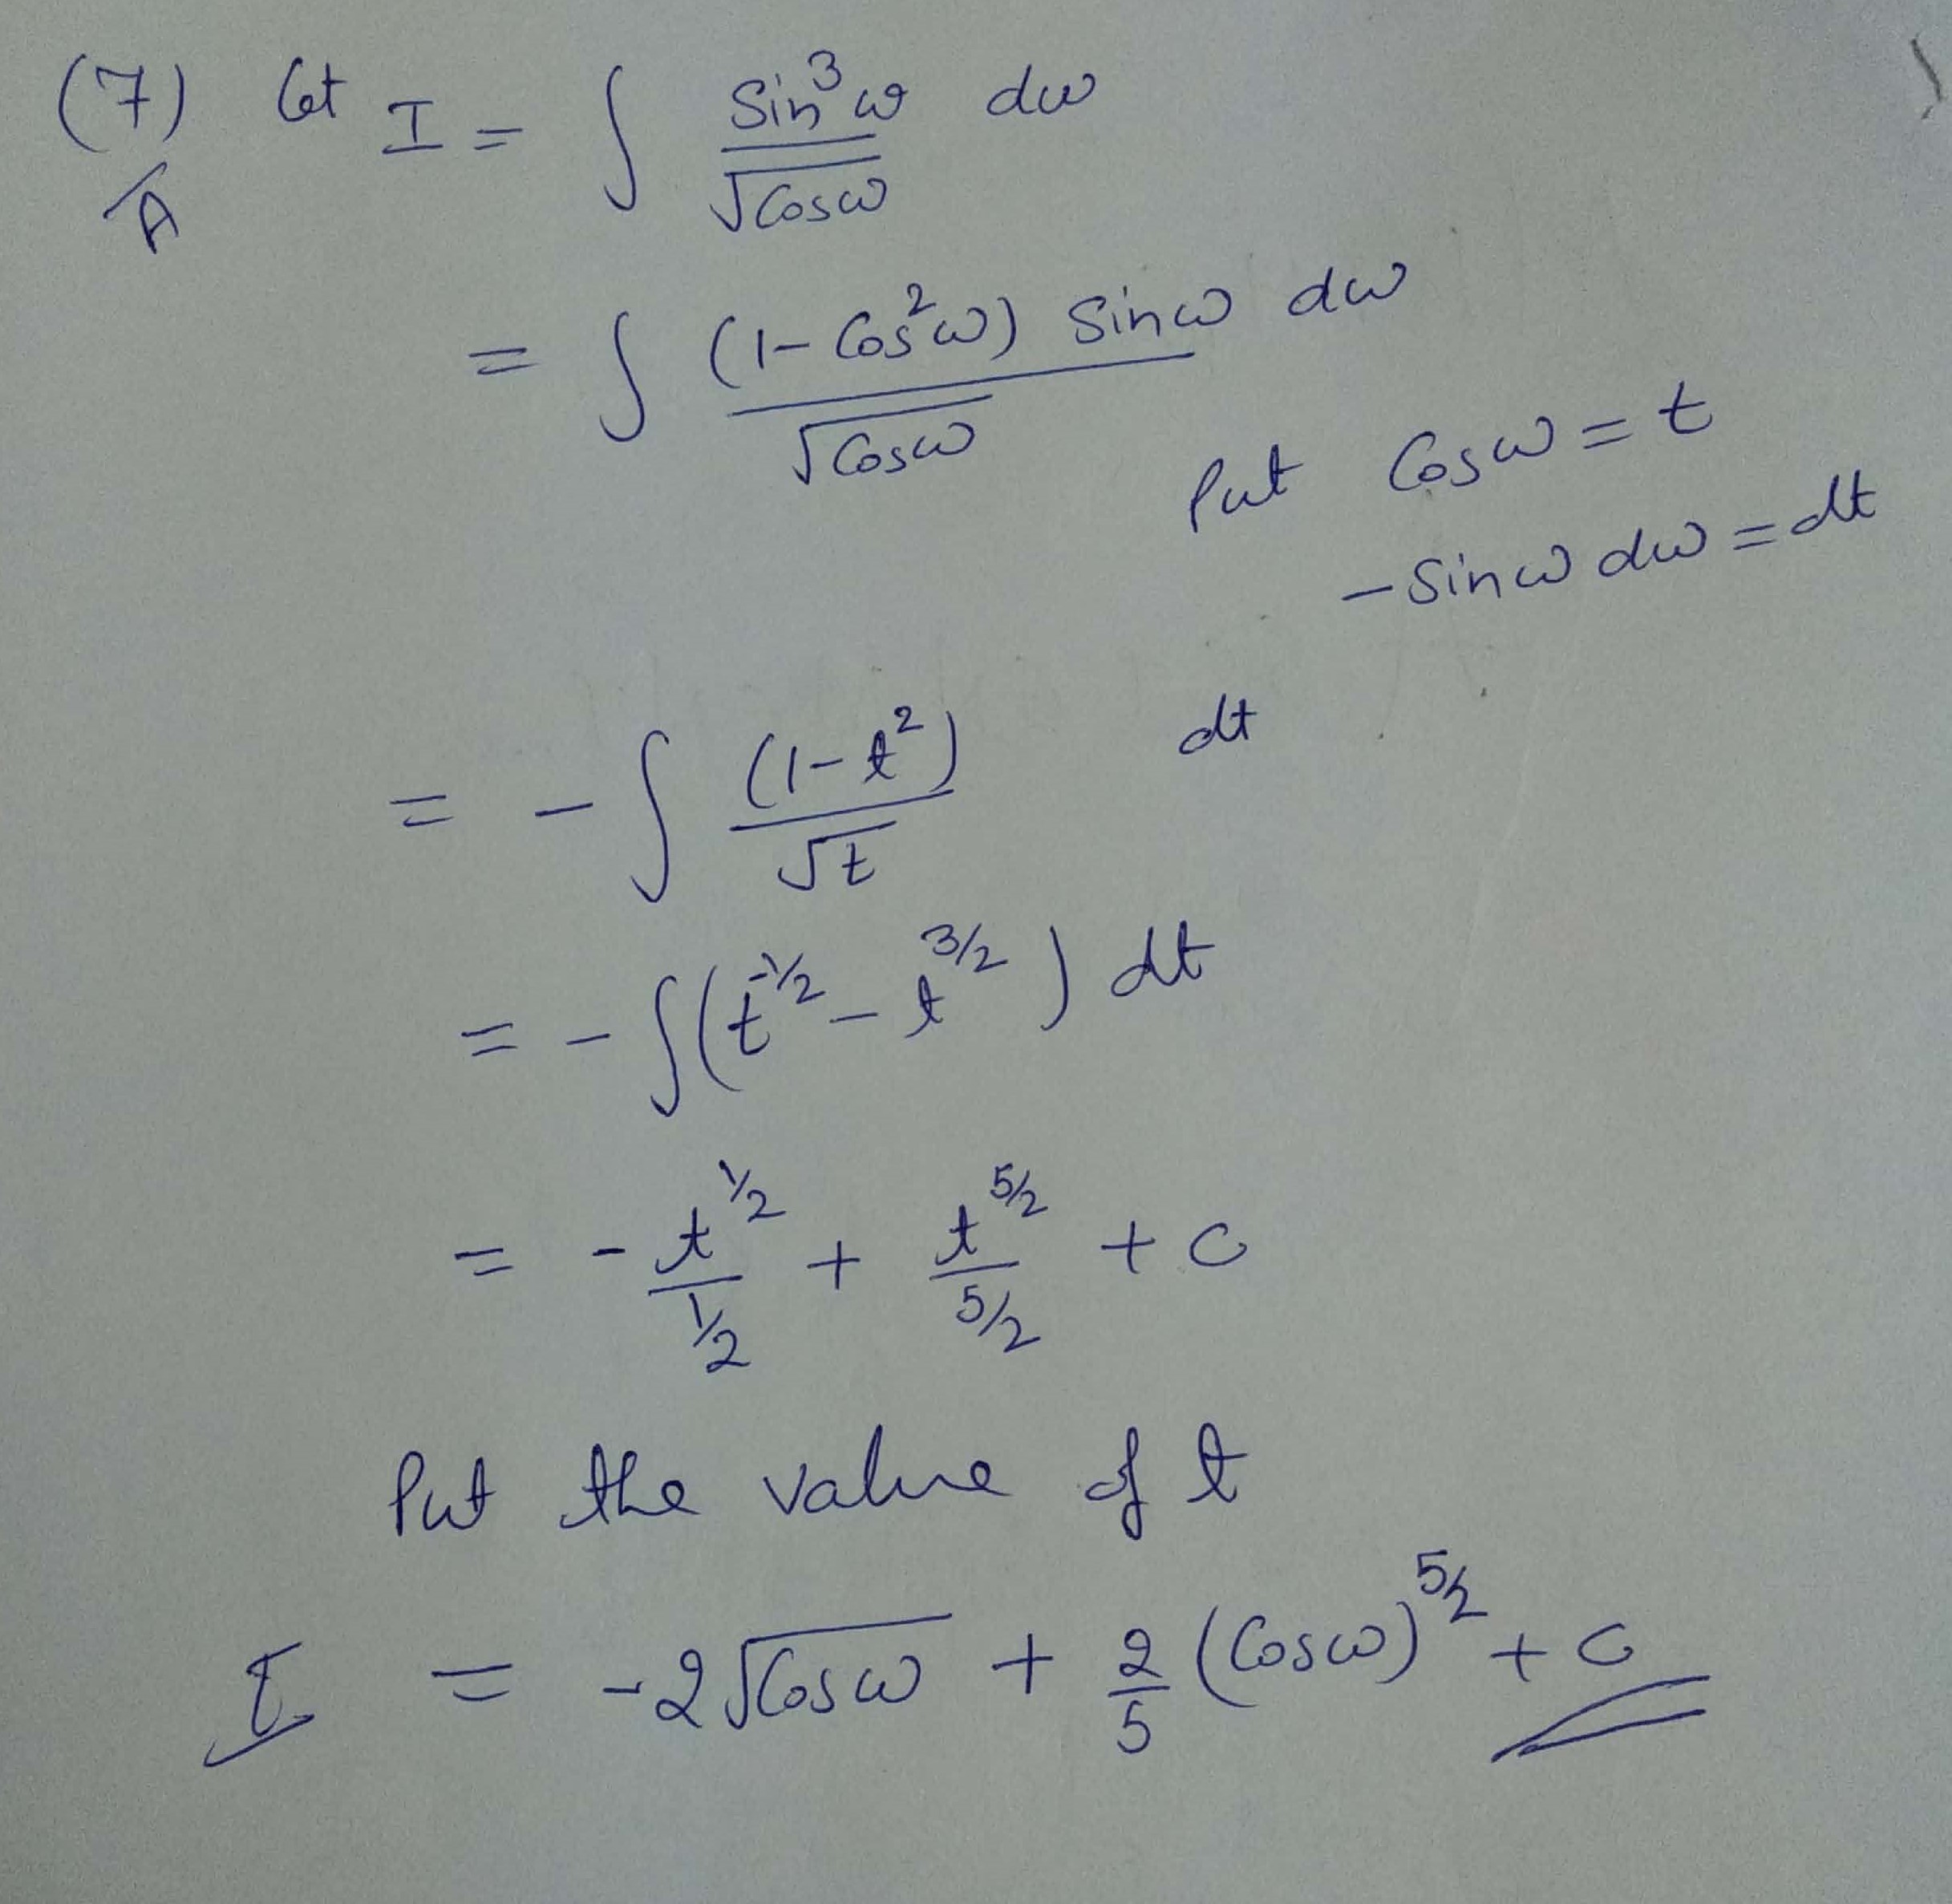 (7) let I = ∫ Sin³ω/√Cosω dω
A
= ∫ (1-Cos²ω) Sinω dω/√Cosω
Put Cosω = t
-Sinω dω = dt
= -∫ (1-t²)/√t dt
= -∫(t^-1/2 - t^3/2) dt
= -t^1/2/1/2 + t^5/2/5/2 + C
Put the value of t
I = -2√Cosω + 2/5 (Cosω)^5/2 + C